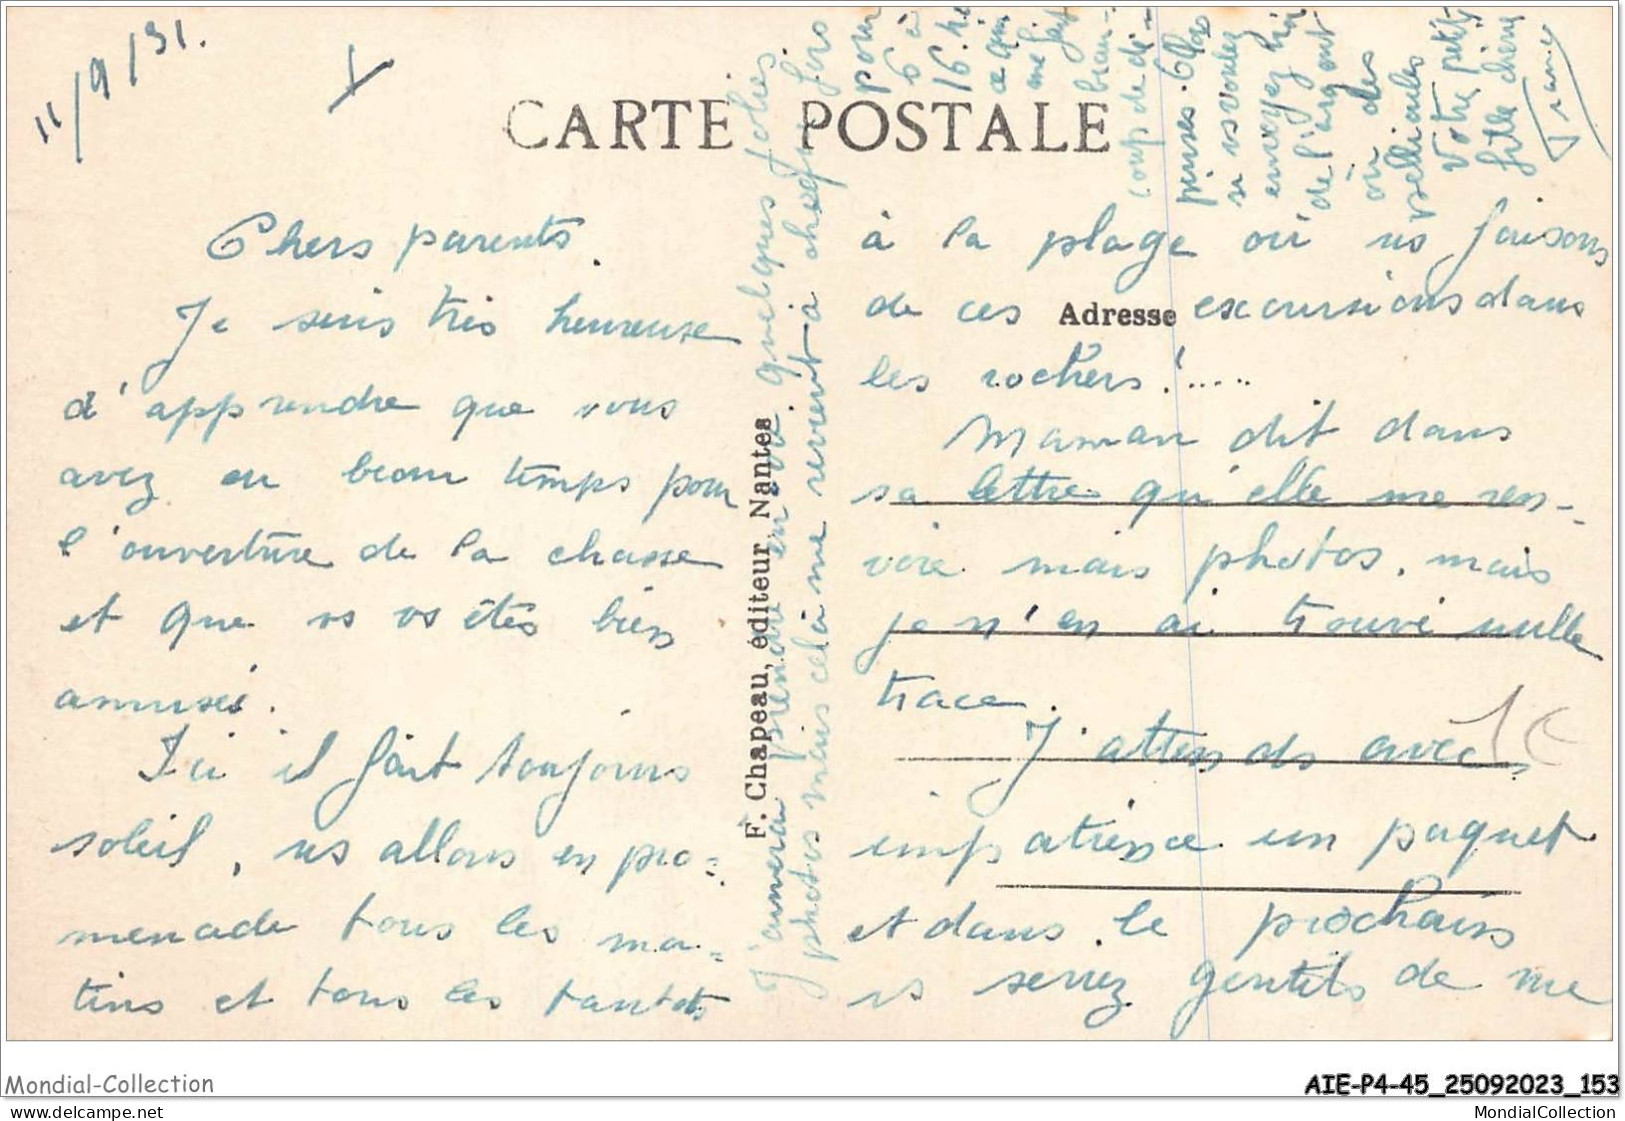 11/9/31.
CARTE POSTALE
Chers parents.
Je suis très heureuse
d'apprendre que vous
avez eu beau temps pour
l'ouverture de la chasse
et que vs vs êtes bien
amusé.
Ici il fait toujours
soleil, ns allons en pro-
menade tous les ma-
tins et tous les tantôts
F. Chapeau, éditeur, Nantes
à la plage où ns faisons
de ces excursions dans
Adresse
les rochers!.....
Maman dit dans
sa lettre qu'elle me ren-
voie mais photos, mais
je n'en ai trouvé nulle
trace.
J'attends avec
impatience un paquet
et dans le prochain
vs serrez gentils de me
J'aimerai prendre en vue quelques jolies
photos mais celà me revient à cheque fois
pour
6 à
16.
ce qui
me fait
beau-
coup de dé-
penses.
si vs voulez
envoyez
de l'argent
ou des
pellicules
Votre petite
fille chérie
1€
Mondial-Collection
AIE-P4-45_25092023_153
mondial-collection@delcampe.net
MondialCollection